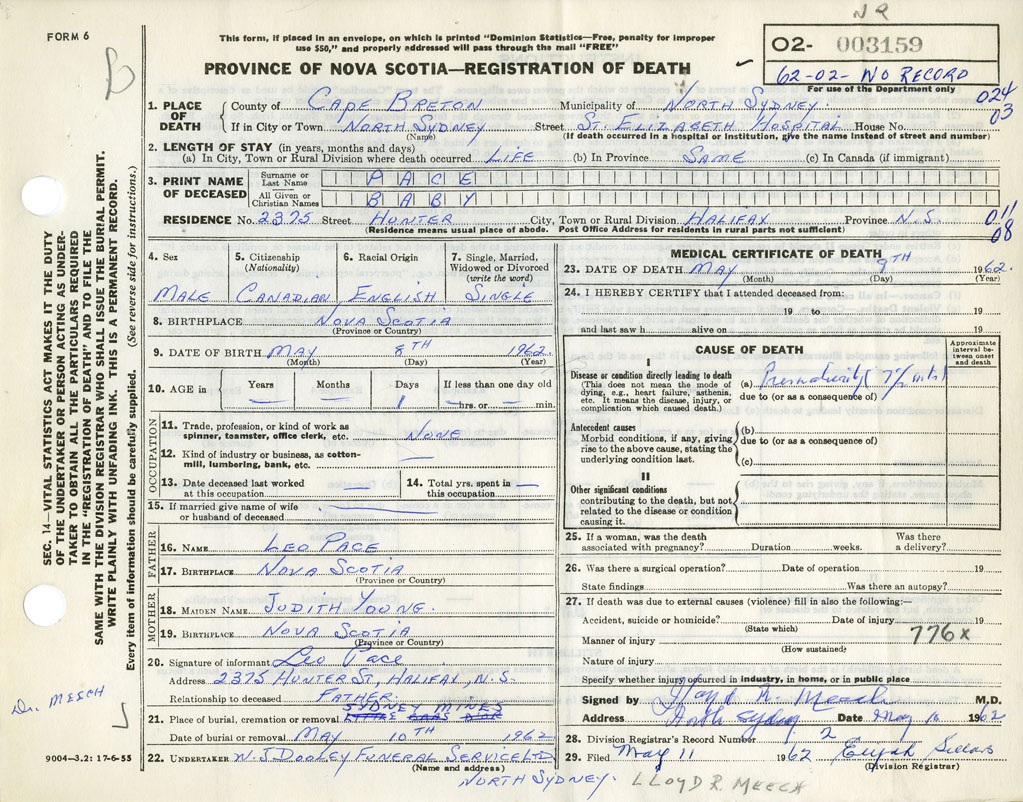 NR
FORM 6
This form, if placed in an envelope, on which is printed "Dominion Statistics—Free, penalty for improper
use $50," and properly addressed will pass through the mail "FREE"
PROVINCE OF NOVA SCOTIA—REGISTRATION OF DEATH
02- 003159
62-02- NO RECORD
For use of the Department only
024
03
1. PLACE OF DEATH
County of CAPE BRETON Municipality of NORTH SYDNEY.
If in City or Town NORTH SYDNEY Street ST. ELIZABETH HOSPITAL House No.
(Name) (If death occurred in a hospital or institution, give the name instead of street and number)
2. LENGTH OF STAY (in years, months and days)
(a) In City, Town or Rural Division where death occurred LIFE (b) In Province SAME (c) In Canada (if immigrant)
3. PRINT NAME OF DECEASED
Surname or Last Name PACE
All Given or Christian Names BABY
RESIDENCE No. 2375 Street HUNTER City, Town or Rural Division HALIFAX Province N.S.
(Residence means usual place of abode. Post Office Address for residents in rural parts not sufficient)
011
08
4. Sex 5. Citizenship (Nationality) 6. Racial Origin 7. Single, Married, Widowed or Divorced (write the word)
MALE CANADIAN ENGLISH SINGLE
8. BIRTHPLACE NOVA SCOTIA
(Province or Country)
9. DATE OF BIRTH MAY 8TH 1962.
(Month) (Day) (Year)
10. AGE in Years Months Days If less than one day old
— — 1 — hrs. or — min.
OCCUPATION
11. Trade, profession, or kind of work as
spinner, teamster, office clerk, etc. NONE
12. Kind of industry or business, as cotton-
mill, lumbering, bank, etc. —
13. Date deceased last worked
at this occupation —
14. Total yrs. spent in
this occupation —
15. If married give name of wife
or husband of deceased —
FATHER
16. NAME LEO PACE
17. BIRTHPLACE NOVA SCOTIA
(Province or Country)
MOTHER
18. MAIDEN NAME JUDITH YOUNG.
19. BIRTHPLACE NOVA SCOTIA
(Province or Country)
20. Signature of informant Leo Pace
Address 2375 HUNTER ST, HALIFAX, N.S.
Relationship to deceased FATHER.
21. Place of burial, cremation or removal SYDNEY MINES
Date of burial or removal MAY 10TH 1962
22. UNDERTAKER W. J DOOLEY FUNERAL SERVICE LTD
(Name and address)
NORTH SYDNEY.
MEDICAL CERTIFICATE OF DEATH
23. DATE OF DEATH MAY 9TH 1962.
(Month) (Day) (Year)
24. I HEREBY CERTIFY that I attended deceased from:
19 to 19
and last saw h alive on 19
CAUSE OF DEATH
Approximate interval between onset and death
I
Disease or condition directly leading to death
(This does not mean the mode of
dying, e.g., heart failure, asthenia,
etc. It means the disease, injury, or
complication which caused death.)
(a) Prematurity (7½ mths)
due to (or as a consequence of)
Antecedent causes
Morbid conditions, if any, giving
rise to the above cause, stating the
underlying condition last.
(b)
due to (or as a consequence of)
(c)
II
Other significant conditions
contributing to the death, but not
related to the disease or condition
causing it.
25. If a woman, was the death Was there
associated with pregnancy? Duration weeks. a delivery?
26. Was there a surgical operation? Date of operation 19
State findings Was there an autopsy?
27. If death was due to external causes (violence) fill in also the following:—
Accident, suicide or homicide? Date of injury 19
(State which)
776x
Manner of injury
(How sustained)
Nature of injury
Specify whether injury occurred in industry, in home, or in public place
Signed by Lloyd R. Meech M.D.
Address North Sydney Date May 10 1962
28. Division Registrar's Record Number 2
29. Filed May 11 1962
(Division Registrar)
LLOYD R. MEECH
SEC. 14—VITAL STATISTICS ACT MAKES IT THE DUTY
OF THE UNDERTAKER OR PERSON ACTING AS UNDER-
TAKER TO OBTAIN ALL THE PARTICULARS REQUIRED
IN THE "REGISTRATION OF DEATH" AND TO FILE THE
SAME WITH THE DIVISION REGISTRAR WHO SHALL ISSUE THE BURIAL PERMIT.
WRITE PLAINLY WITH UNFADING INK. THIS IS A PERMANENT RECORD.
Every item of information should be carefully supplied. (See reverse side for instructions.)
Dr. MEECH
9004—3.2: 17-6-55